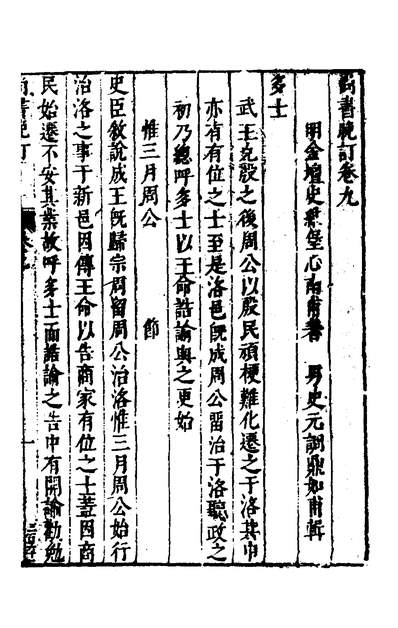 尚書晚訂卷九
明金壇史維堡心南甫著　男史元調鼎如甫輯
多士
武王克殷之後周公以殷民頑梗難化遷之于洛其中
亦有有位之士至是洛邑旣成周公留治于洛聽政之
初乃總呼多士以王命誥諭與之更始
惟三月周公　節
史臣敘說成王旣歸宗周留周公治洛惟三月周公始行
治洛之事于新邑因傳王命以告商家有位之士蓋因商
民始遷不安其業故呼多士而誥諭之告中有開諭勸勉
尚書晚訂　卷九